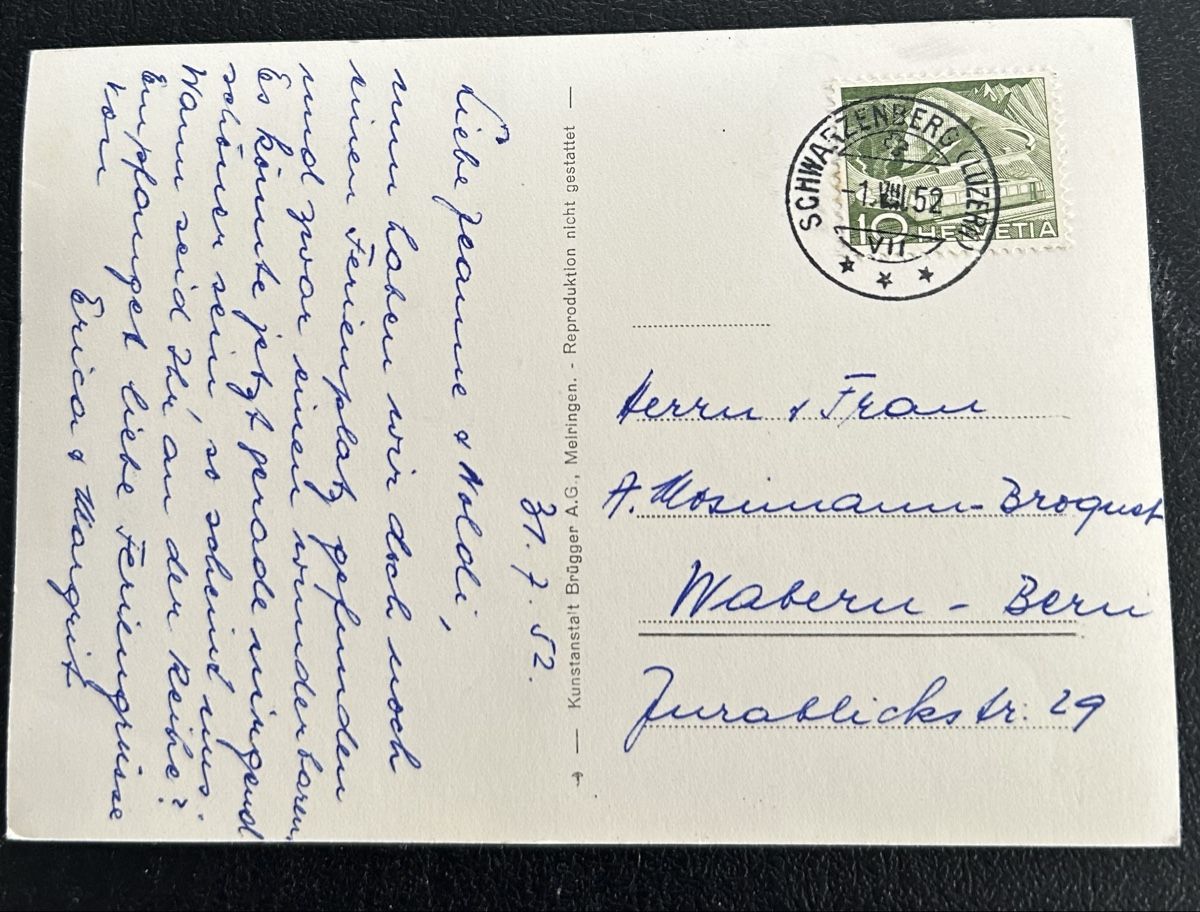 31. 7. 52.
Liebe Jeanne & Noldi,
nun haben wir doch noch
einen Ferienplatz gefunden
und zwar einen wunderbaren.
Es könnte jetzt gerade nirgend
schöner sein, so scheint uns.
Wann seid Ihr an der Reihe?
Empfanget liebe Feriengrüsse
von
Erica & Margrit
Kunstanstalt Brügger A.G., Meiringen. - Reproduktion nicht gestattet
SCHWARZENBERG (LUZERN)
-1.VIII.52
VII
10 HELVETIA
Herrn & Frau
A. Mosimann-Brogust
Wabern - Bern
Jurablickstr. 29